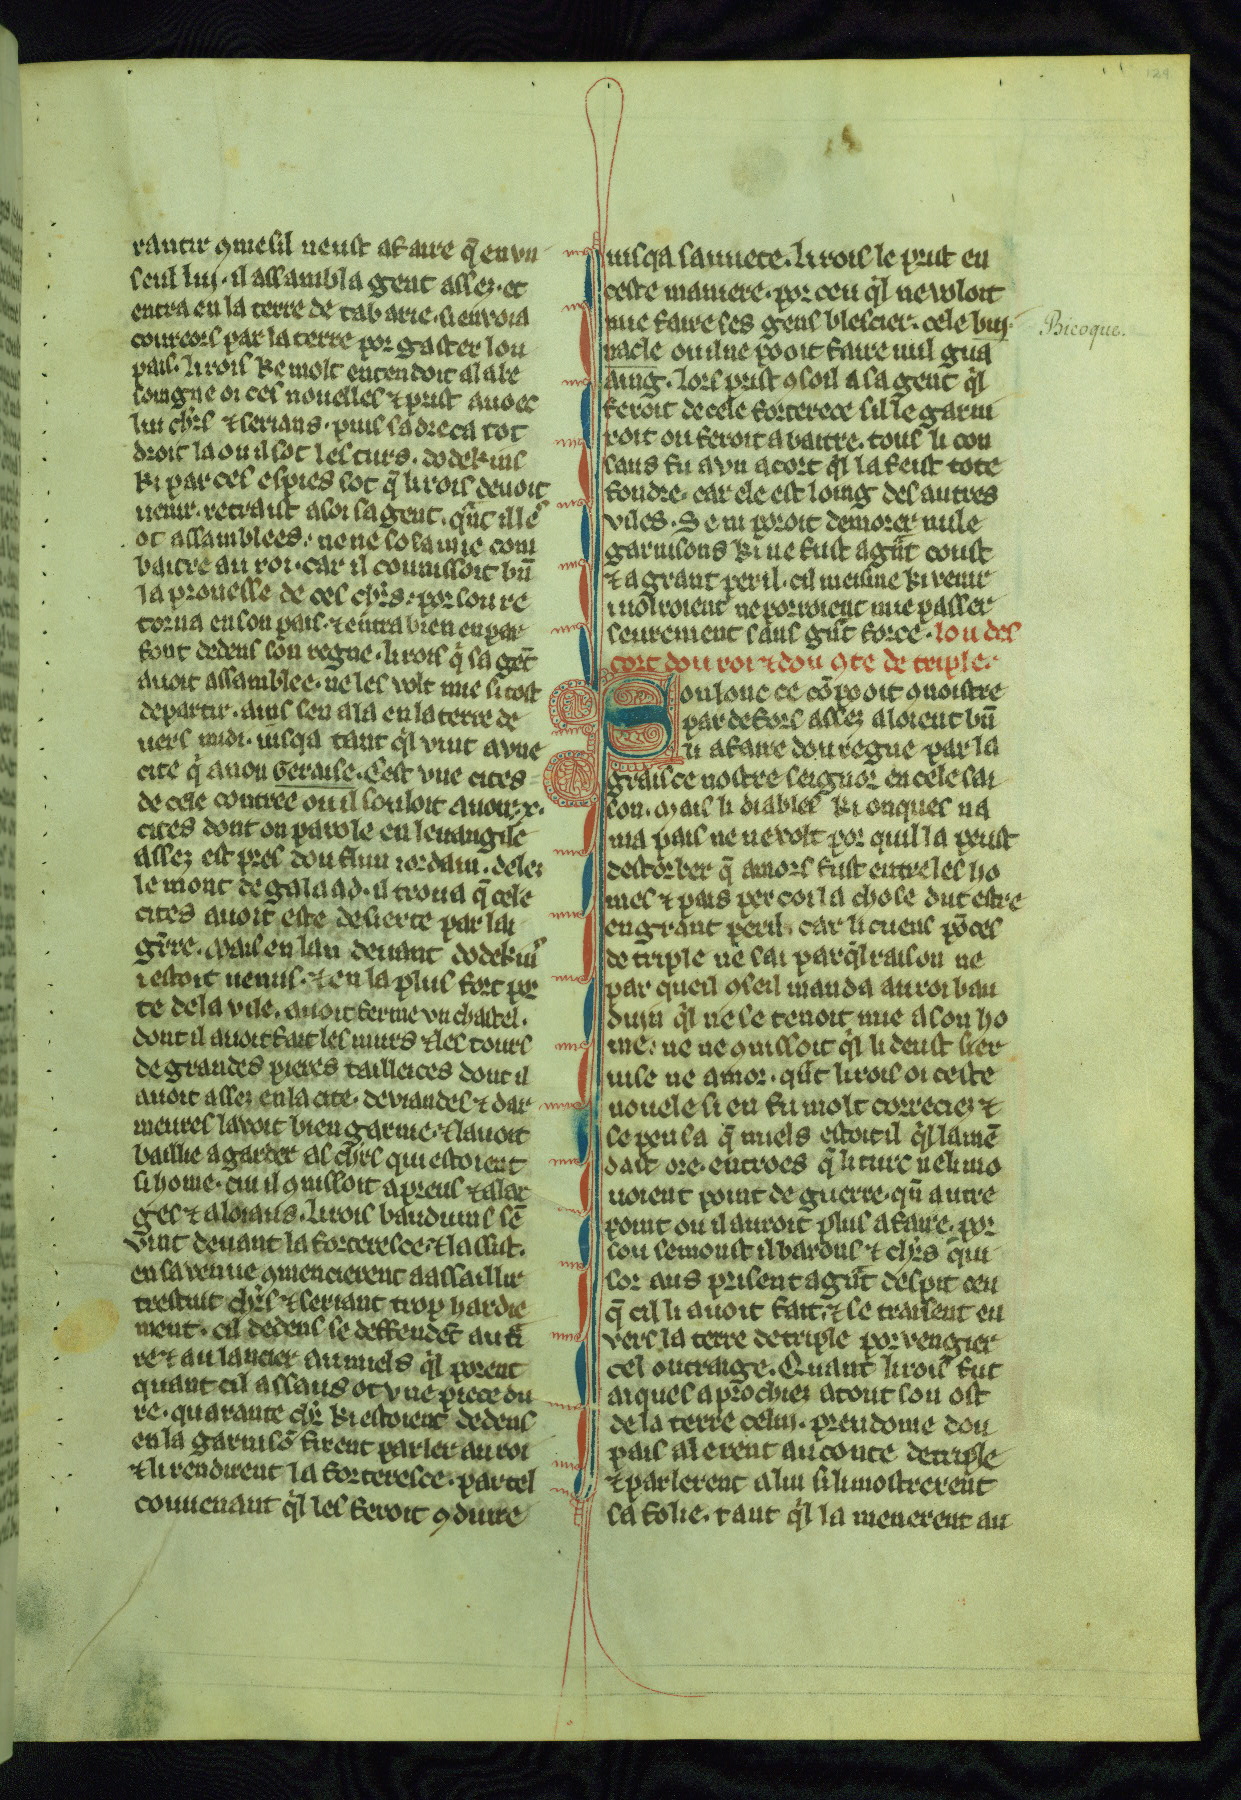 129
rantir ꝯme sil neust afaire q̄ en vn
seul lui. il assambla gent assez. et
entra en la terre de tabarie. si enuoia
coureors par la terre por gaster lou
pais. li rois ke molt entendoit al abe
soingne oi ces nouelles ⁊ prist auoec
lui chr̄s ⁊ serians. puis sadreca tot
droit la ou il sot les turs. dodekins
ki par ces espies sot q̄ li rois deuoit
uenir. retraist a soi sa gent. qn̄t il les
ot assamblees. ne ne sosa mie com
batre au roi. car il counissoit bn̄
la prouesse de ces chr̄s. por sou re
torna en son pais. ⁊ entra bien en par
font dedens son regne. li rois q̄ sa gēt
auoit assamblee. ne les volt mie si tost
departir. ains sen ala en la terre de
uers midi. iusqa tant ql̄ vint a vne
cite q̄ a non Geraise. Cest vne cites
de cele contree ou il souloit auoir .x.
cites dont on parole en leuangile
assez est pres dou flun iordain. delez
le mont de galaad. il troua q̄ cele
cites auoit este deserte par lai
gr̄re. mais en lan deuant dodekins
i estoit uenus. ⁊ en la plus fort por
te de la vile. auoit ferme vn chastel.
dont il auoit fait les murs ⁊ les tours
de grandes pieres tailleices dont il
auoit assez en la cite. de viandes ⁊ dar
meures lauoit bien garnie. ⁊ lauoit
baillie a garder as chr̄s qui estoient
si home. cui il ꝯnissoit a preus ⁊ a lar
ges ⁊ a loiaus. li rois bauduins sē
vint deuant la forteresce. ⁊ lassist.
en sa venue ꝯmencierent a assaillir
trestuit chr̄s ⁊ seriant trop hardie
ment. cil dedens se deffendēt au ti
re ⁊ au lancier au miels ql̄ porent
quant cil assaus ot vne piece du
re. quarante chr̄ ki estoient dedens
en la garnisō firent parler au roi
⁊ li rendirent la forteresce. par tel
conuenant ql̄ les feroit ꝯduire
iusqa sauuete. li rois le prist en
ceste maniere. por ceu ql̄ ne voloit
mie faire ses gens blescier. cele bui
nacle ou il ne pooit faire nul gua
aing. lors prist ꝯsoil a sa gent ql̄
feroit de cele forterece sil le garni
roit ou feroit abatre. tous li con
saus fu a vn acort ql̄ la feist tote
fondre. car ele est loing des autres
viles. Se ni poroit demorer nule
garnisons ki ne fust a gn̄t coust
⁊ a grant peril. cil meisme ki venir
i uolroient ne porroient mie passer
seurement sans gn̄t force. lou des
cort dou roi ⁊ dou ꝯte de triple.
Eou loue ce cō pooit ꝯnoistre
par defors assez aloient bn̄
li afaire dou regne par la
graisce nostre seignor en cele sai
son. Mais li diables ki onques na
ma pais ne ne volt por quil la peust
destorber q̄ amors fust entre les ho
mes ⁊ pais per coi la chose dut estre
en grant peril. car li cuens pōces
de triple ne sai par ql̄ raison ne
par queil ꝯseil manda au roi bau
duin ql̄ ne se tenoit mie a son ho
me. ne ne ꝯnissoit ql̄ li deust ser
uise ne amor. qn̄t li rois oi ceste
nouele si en fu molt correciez ⁊
se pensa q̄ miels estoit il ql̄ lamē
dast ore. entroes q̄ li turc ne li mo
uoient point de guerre. qn̄ autre
point ou il auroit plus a faire. por
sou semonst il barons ⁊ chr̄s qui
lor ans prisent a gn̄t despit ceu
q̄ cil li auoit fait. ⁊ se traisent en
vers la terre de triple por vengier
cel outraige. Quant li rois fut
aiques aprochiez a tout son ost
de la terre celui. preudome dou
pais alerent au conte de triple
⁊ parlerent a lui si li mostrerent
sa folie. tant ql̄ la menerent au
Bicoque.